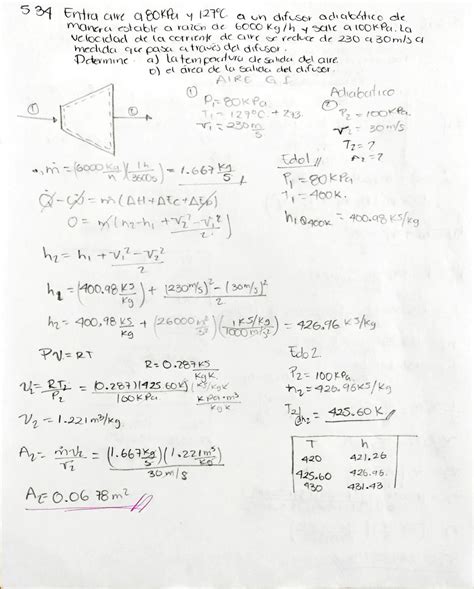 5 34 Entra aire a 80KPa y 127°C a un difusor adiabático de
manera estable a razón de 6000 Kg/h y sale a 100KPa. La
velocidad de la corriente de aire se reduce de 230 a 30m/s a
medida que pasa a través del difusor.
Determine a) la temperatura de salida del aire
b) el área de la salida del difusor.
AIRE G.I.
① P1=80KPa
T1=127°C + 273
V1=230 m/s
Adiabatico
② P2=100KPa
V2=30m/s
T2=?
A2=?
ṁ=(6000 Kg/h)(1h/3600s) = 1.667 Kg/s
Q̇-Ẇ= ṁ(ΔH+ΔEc+ΔEp)
0= ṁ(h2-h1+V2²-V1²/2)
h2=h1+V1²-V2²/2
Edo1
P1=80KPa
T1=400K
h1@400K=400.98 KJ/Kg
h2=(400.98 KJ/Kg)+(230m/s)²-(30m/s)²/2
h2= 400.98 KJ/Kg + (26000 m²/s²)(1KJ/Kg/1000m²/s²) = 426.96 KJ/Kg
PV=RT R=0.287KJ/KgK
V2=RT2/P2=(0.287)(425.60K)/100KPa KJ/KgK KPa·m³/KgK
V2=1.221m³/Kg
Edo2
P2=100KPa
h2=426.96KJ/Kg
T2@h2=425.60K
A2=ṁV2/V2=(1.667Kg/s)(1.221m³/Kg)/30m/s
A2=0.0678m²
T h
420 421.26
425.60 426.96
430 431.43